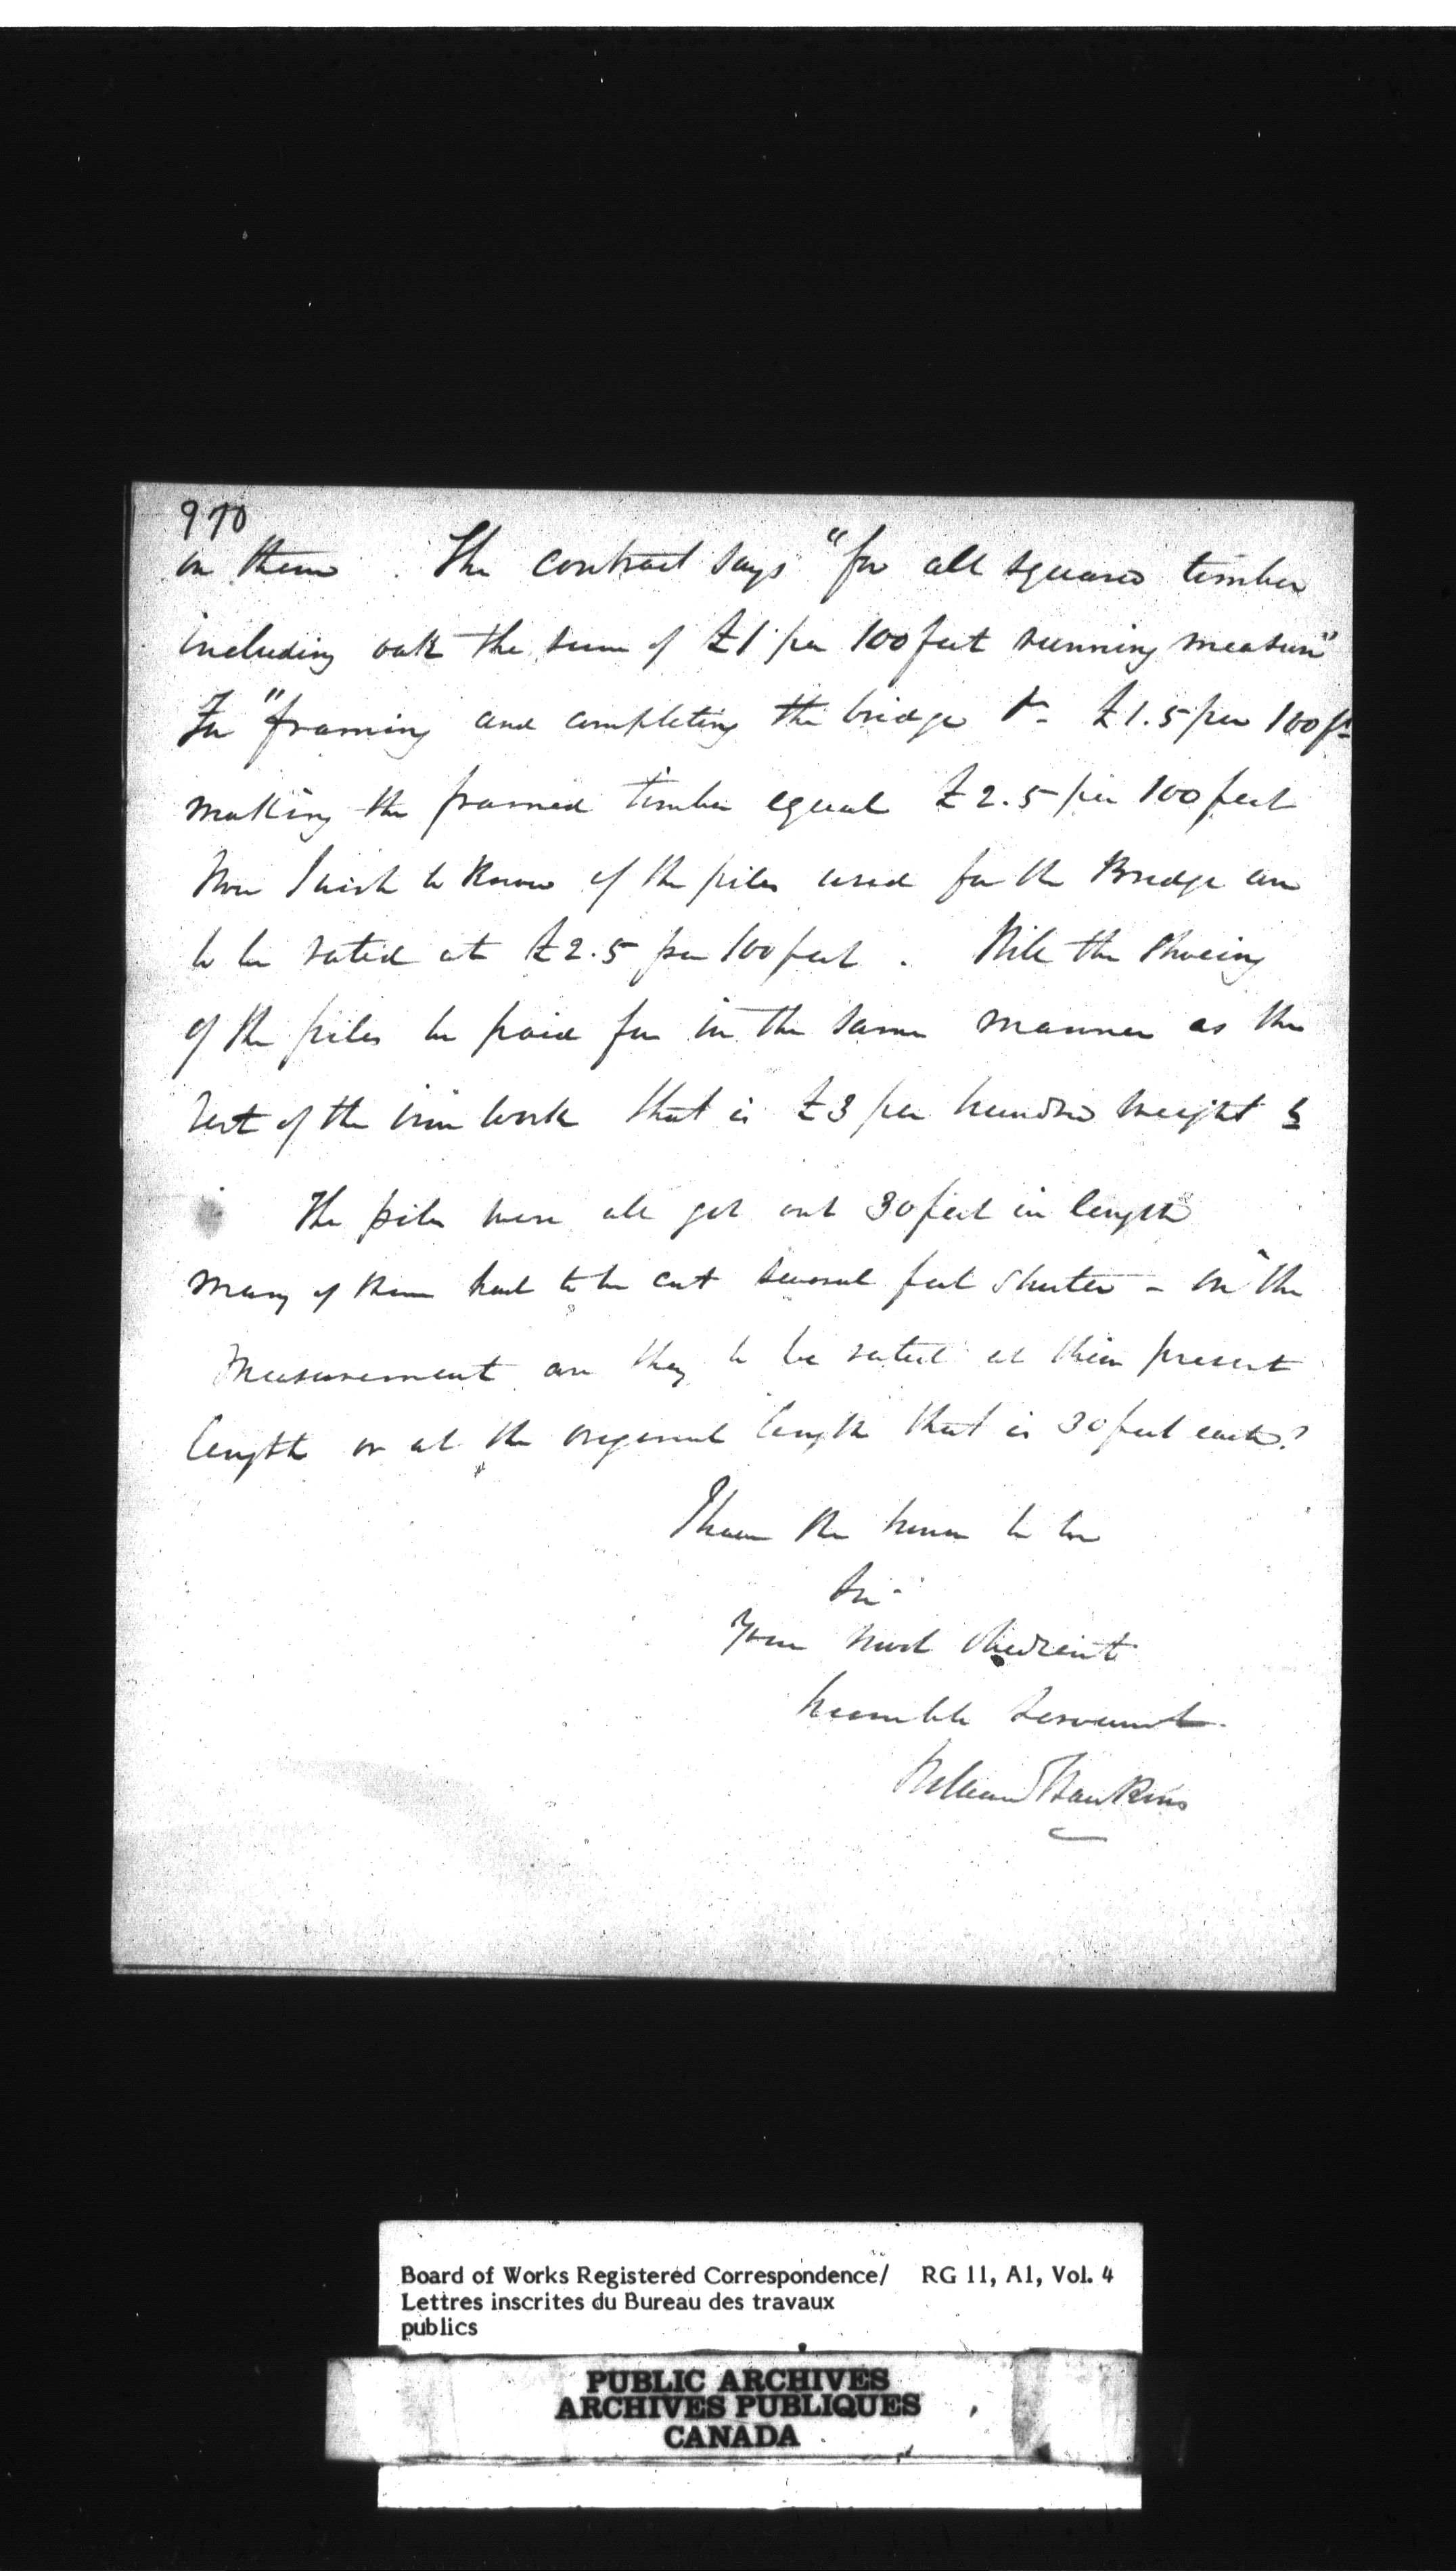 970
on them. The contract says "for all squared timber
including oak the sum of £1 per 100 feet running measure"
For "framing and completing the bridge &c £1.5 per 100 ft
making the framed timber equal £2.5 per 100 feet
Now I wish to know if the piles used for the Bridge are
to be rated at £2.5 per 100 feet. Will the shoeing
of the piles be paid for in the same manner as the
rest of the iron work that is £3 per hundred weight
The piles were all got out 30 feet in length
many of them had to be cut several feet shorter - in the
measurement are they to be rated at their present
length or at the original length that is 30 feet each?
I have the honor to be
Sir
Your most obedient
humble servant
William Hawkins
Board of Works Registered Correspondence/ RG 11, A1, Vol. 4
Lettres inscrites du Bureau des travaux
publics
PUBLIC ARCHIVES
ARCHIVES PUBLIQUES
CANADA